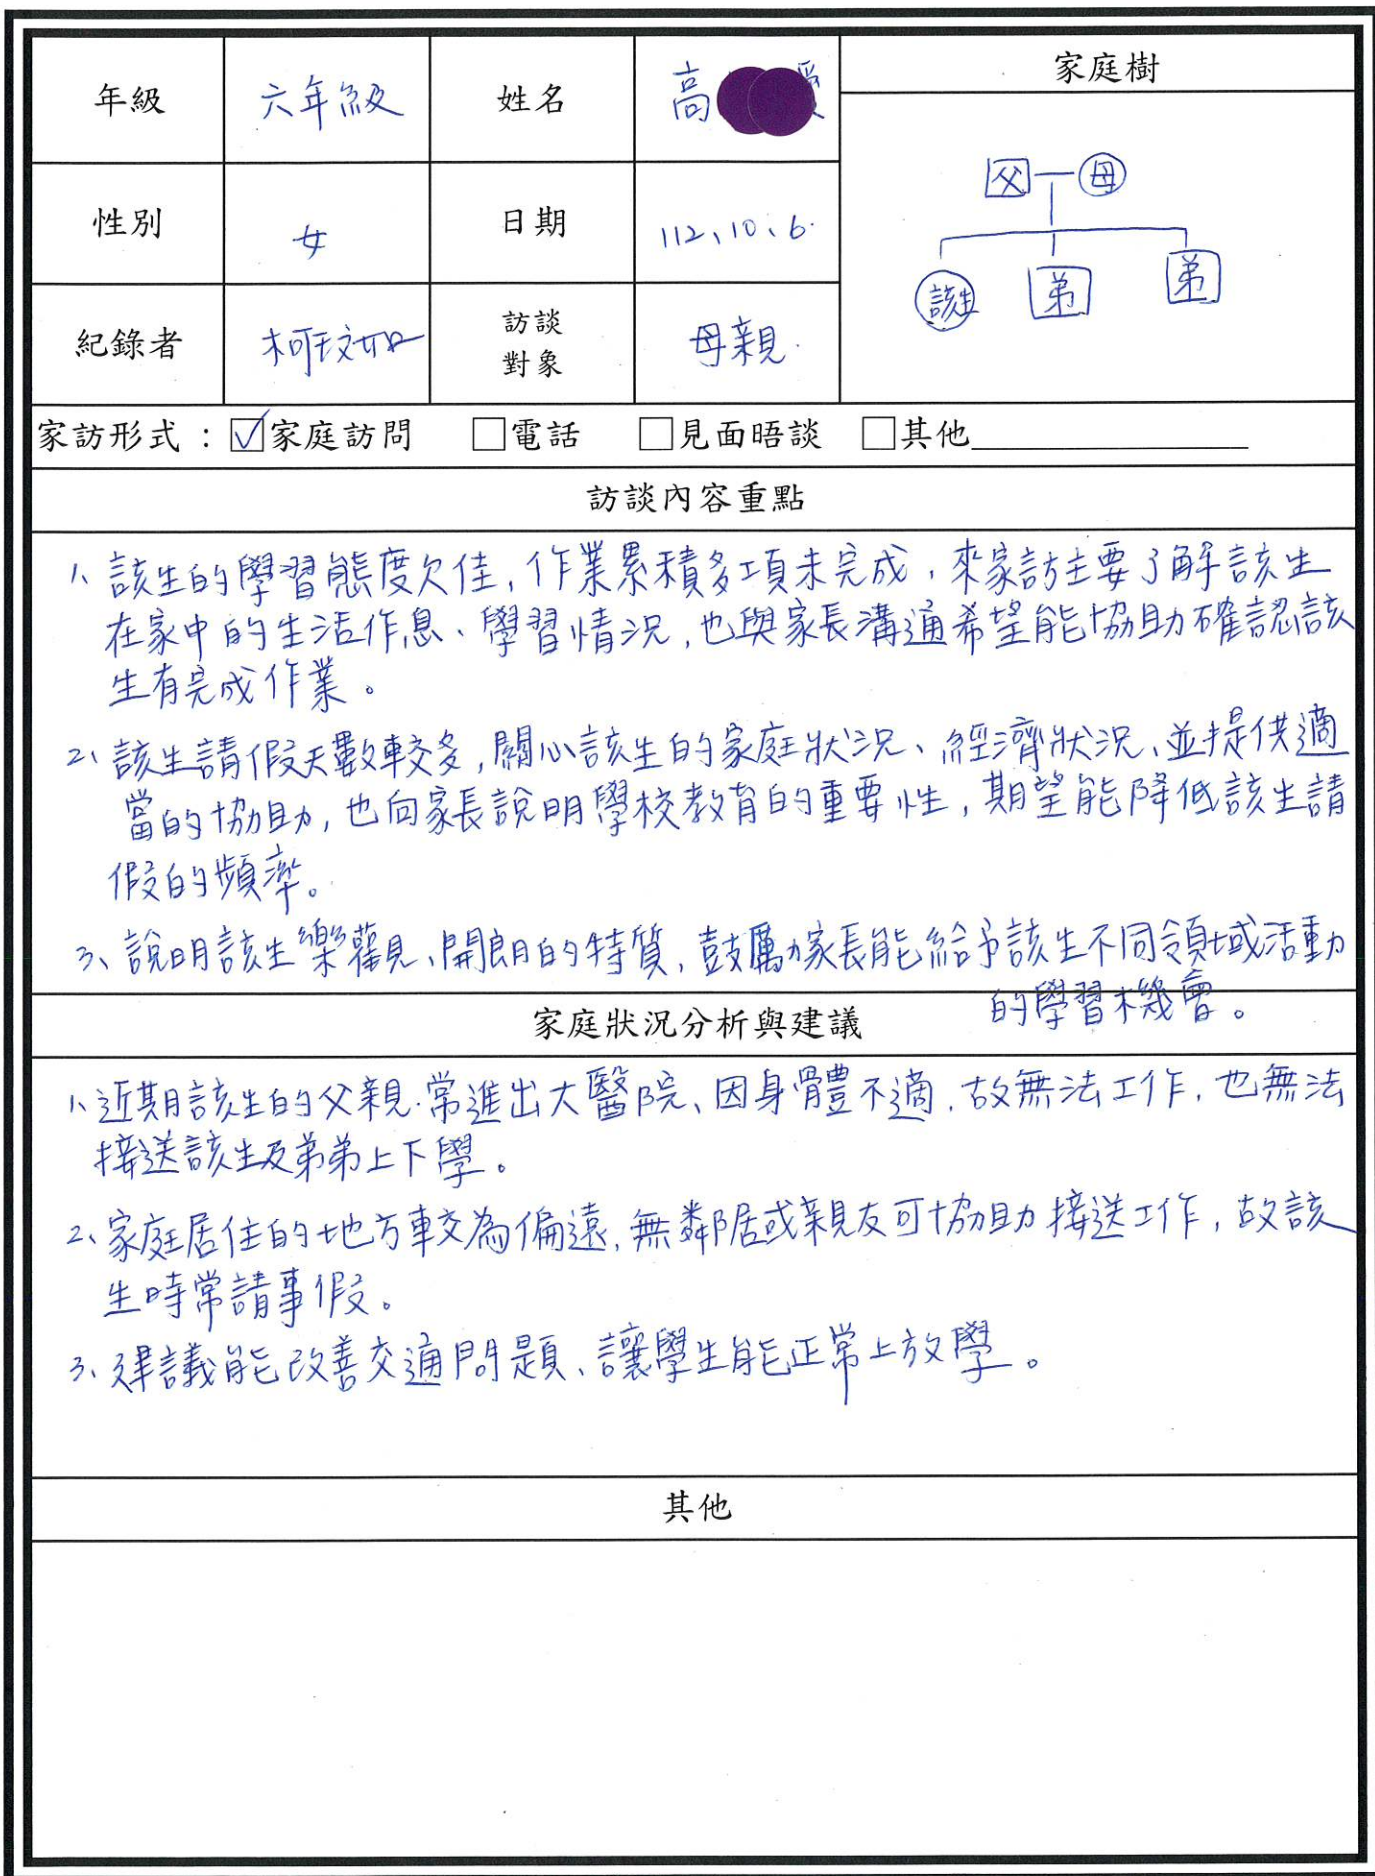 年級 六年級 姓名 高 家庭樹
父 母
性別 女 日期 112、10、6.
該生 弟 弟
紀錄者 訪談對象 母親.
家訪形式：☑家庭訪問 □電話 □見面晤談 □其他
訪談內容重點
1、該生的學習態度欠佳，作業累積多項未完成，來家訪主要了解該生
在家中的生活作息、學習情況，也與家長溝通希望能協助確認該
生有完成作業。
2、該生請假天數較多，關心該生的家庭狀況、經濟狀況、並提供適
當的協助，也向家長說明學校教育的重要性，期望能降低該生請
假的頻率。
3、說明該生樂觀、開朗的特質，鼓勵家長能給予該生不同領域活動
的學習機會。
家庭狀況分析與建議
1、近期該生的父親.常進出大醫院、因身體不適，故無法工作，也無法
接送該生及弟弟上下學。
2、家庭居住的地方較為偏遠，無鄰居或親友可協助接送工作，故該
生時常請事假。
3、建議能改善交通問題、讓學生能正常上放學。
其他